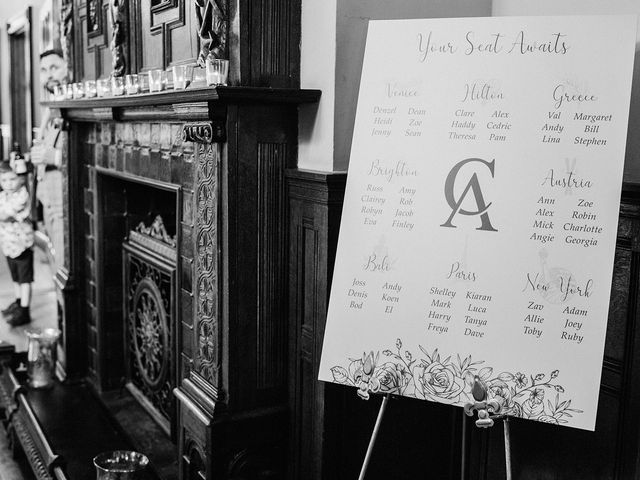 Your Seat Awaits
Venice
Denzel Dean
Heidi Zoe
Jenny Sean
Hilton
Clare Alex
Haddy Cedric
Theresa Pam
Greece
Val Margaret
Andy Bill
Lina Stephen
Brighton
Russ Amy
Clairey Rob
Robyn Jacob
Eva Finley
CA
Austria
Ann Zoe
Alex Robin
Mick Charlotte
Angie Georgia
Bali
Joss Andy
Denis Koen
Bod El
Paris
Shelley Kiaran
Mark Luca
Harry Tanya
Freya Dave
New York
Zav Adam
Allie Joey
Toby Ruby